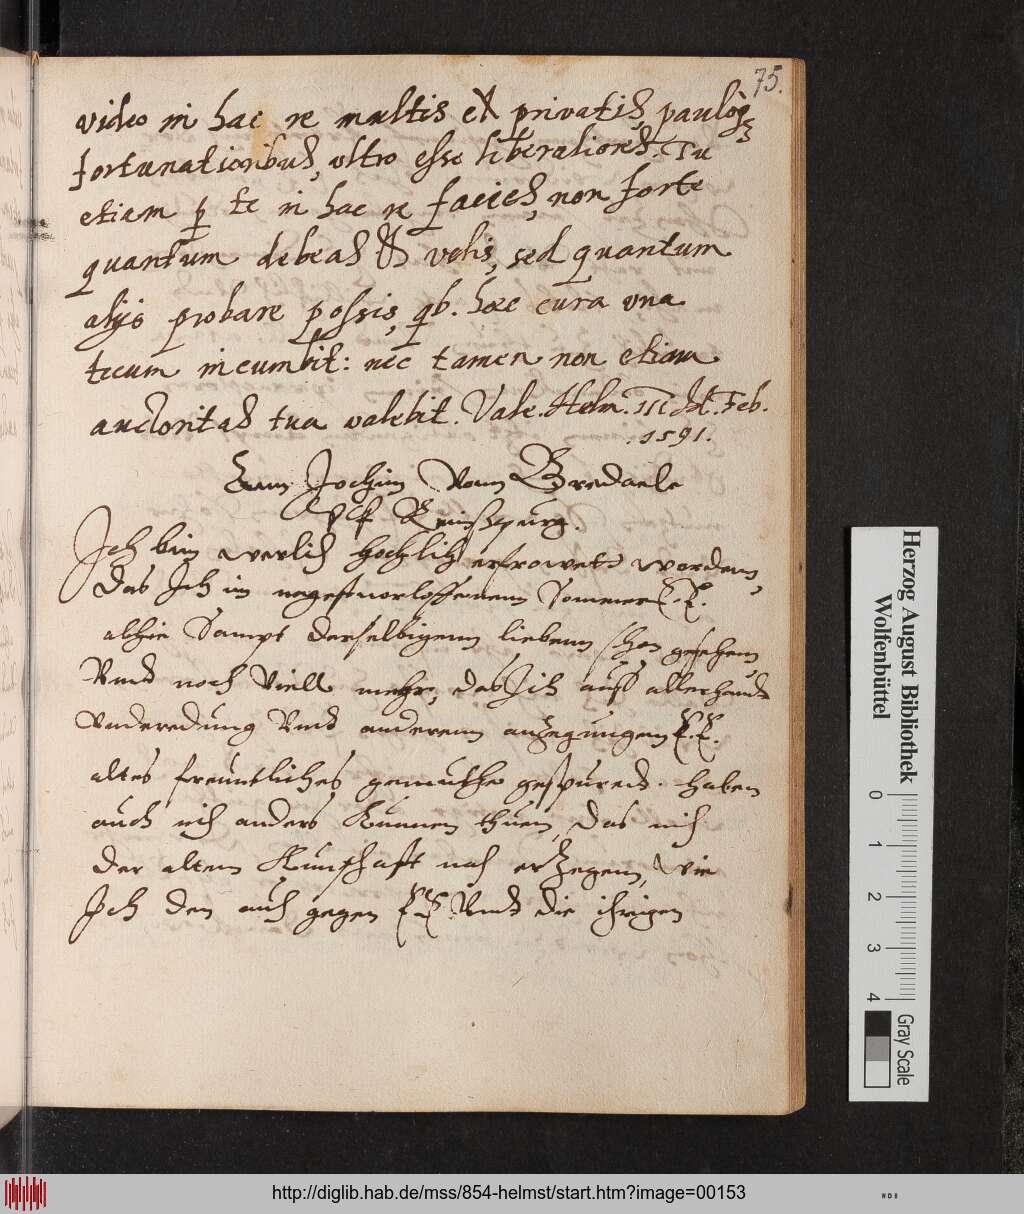 75.
video in hac re multis et privatis, paulo q;
fortunatioribus, ultro esse liberaliores. Tu
etiam p te in hac re facies, non forte
quantum debeas et velis, sed quantum
alijs probare possis, qb. hæc cura una
tecum incumbit: nec tamen non etiam
auctoritas tua valebit. Vale. Helm. III Id. Feb.
.1591.
Jochim Vam Bredaele
Vff
Jch bin werlich hochlich erfrowett worden,
Das Jch im negestvorlossenenn Sommer E. E.
alhie Sampt derselbigenn liebenn gesehenn,
Vnnd noch Viell mehr, das Jch auss allerhandt
Vnderedung Vnnd anderenn anzegungen E. E.
altes freuntliches gemuthe gespurett. haben
auch nich anders Kunnen thuen, Das mich
der alten Kuntschaft nach erzegenn, Wie
Jch den auch gegen E E Vnnd die ihrigen
Herzog August Bibliothek
Wolfenbüttel
0 1 2 3 4
Gray Scale
http://diglib.hab.de/mss/854-helmst/start.htm?image=00153
WDB